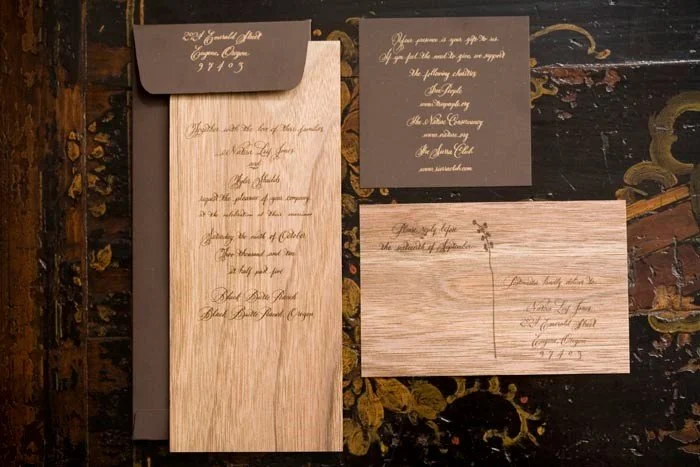 2221 Emerald Street
Eugene, Oregon
97403
Together with the love of their families
Natalie Leif Jones
and
Tyler Shields
request the pleasure of your company
at the celebration of their marriage
Saturday the ninth of October
Two thousand and ten
at half past five
Black Butte Ranch
Black Butte Ranch, Oregon
Your presence is your gift to us.
If you feel the need to give, we support
the following charities
Tree People
www.treepeople.org
The Nature Conservancy
www.nature.org
The Sierra Club
www.sierraclub.com
Please reply before
the sixteenth of September
Postmaster kindly deliver to:
Natalie Leif Jones
2221 Emerald Street
Eugene, Oregon
97403